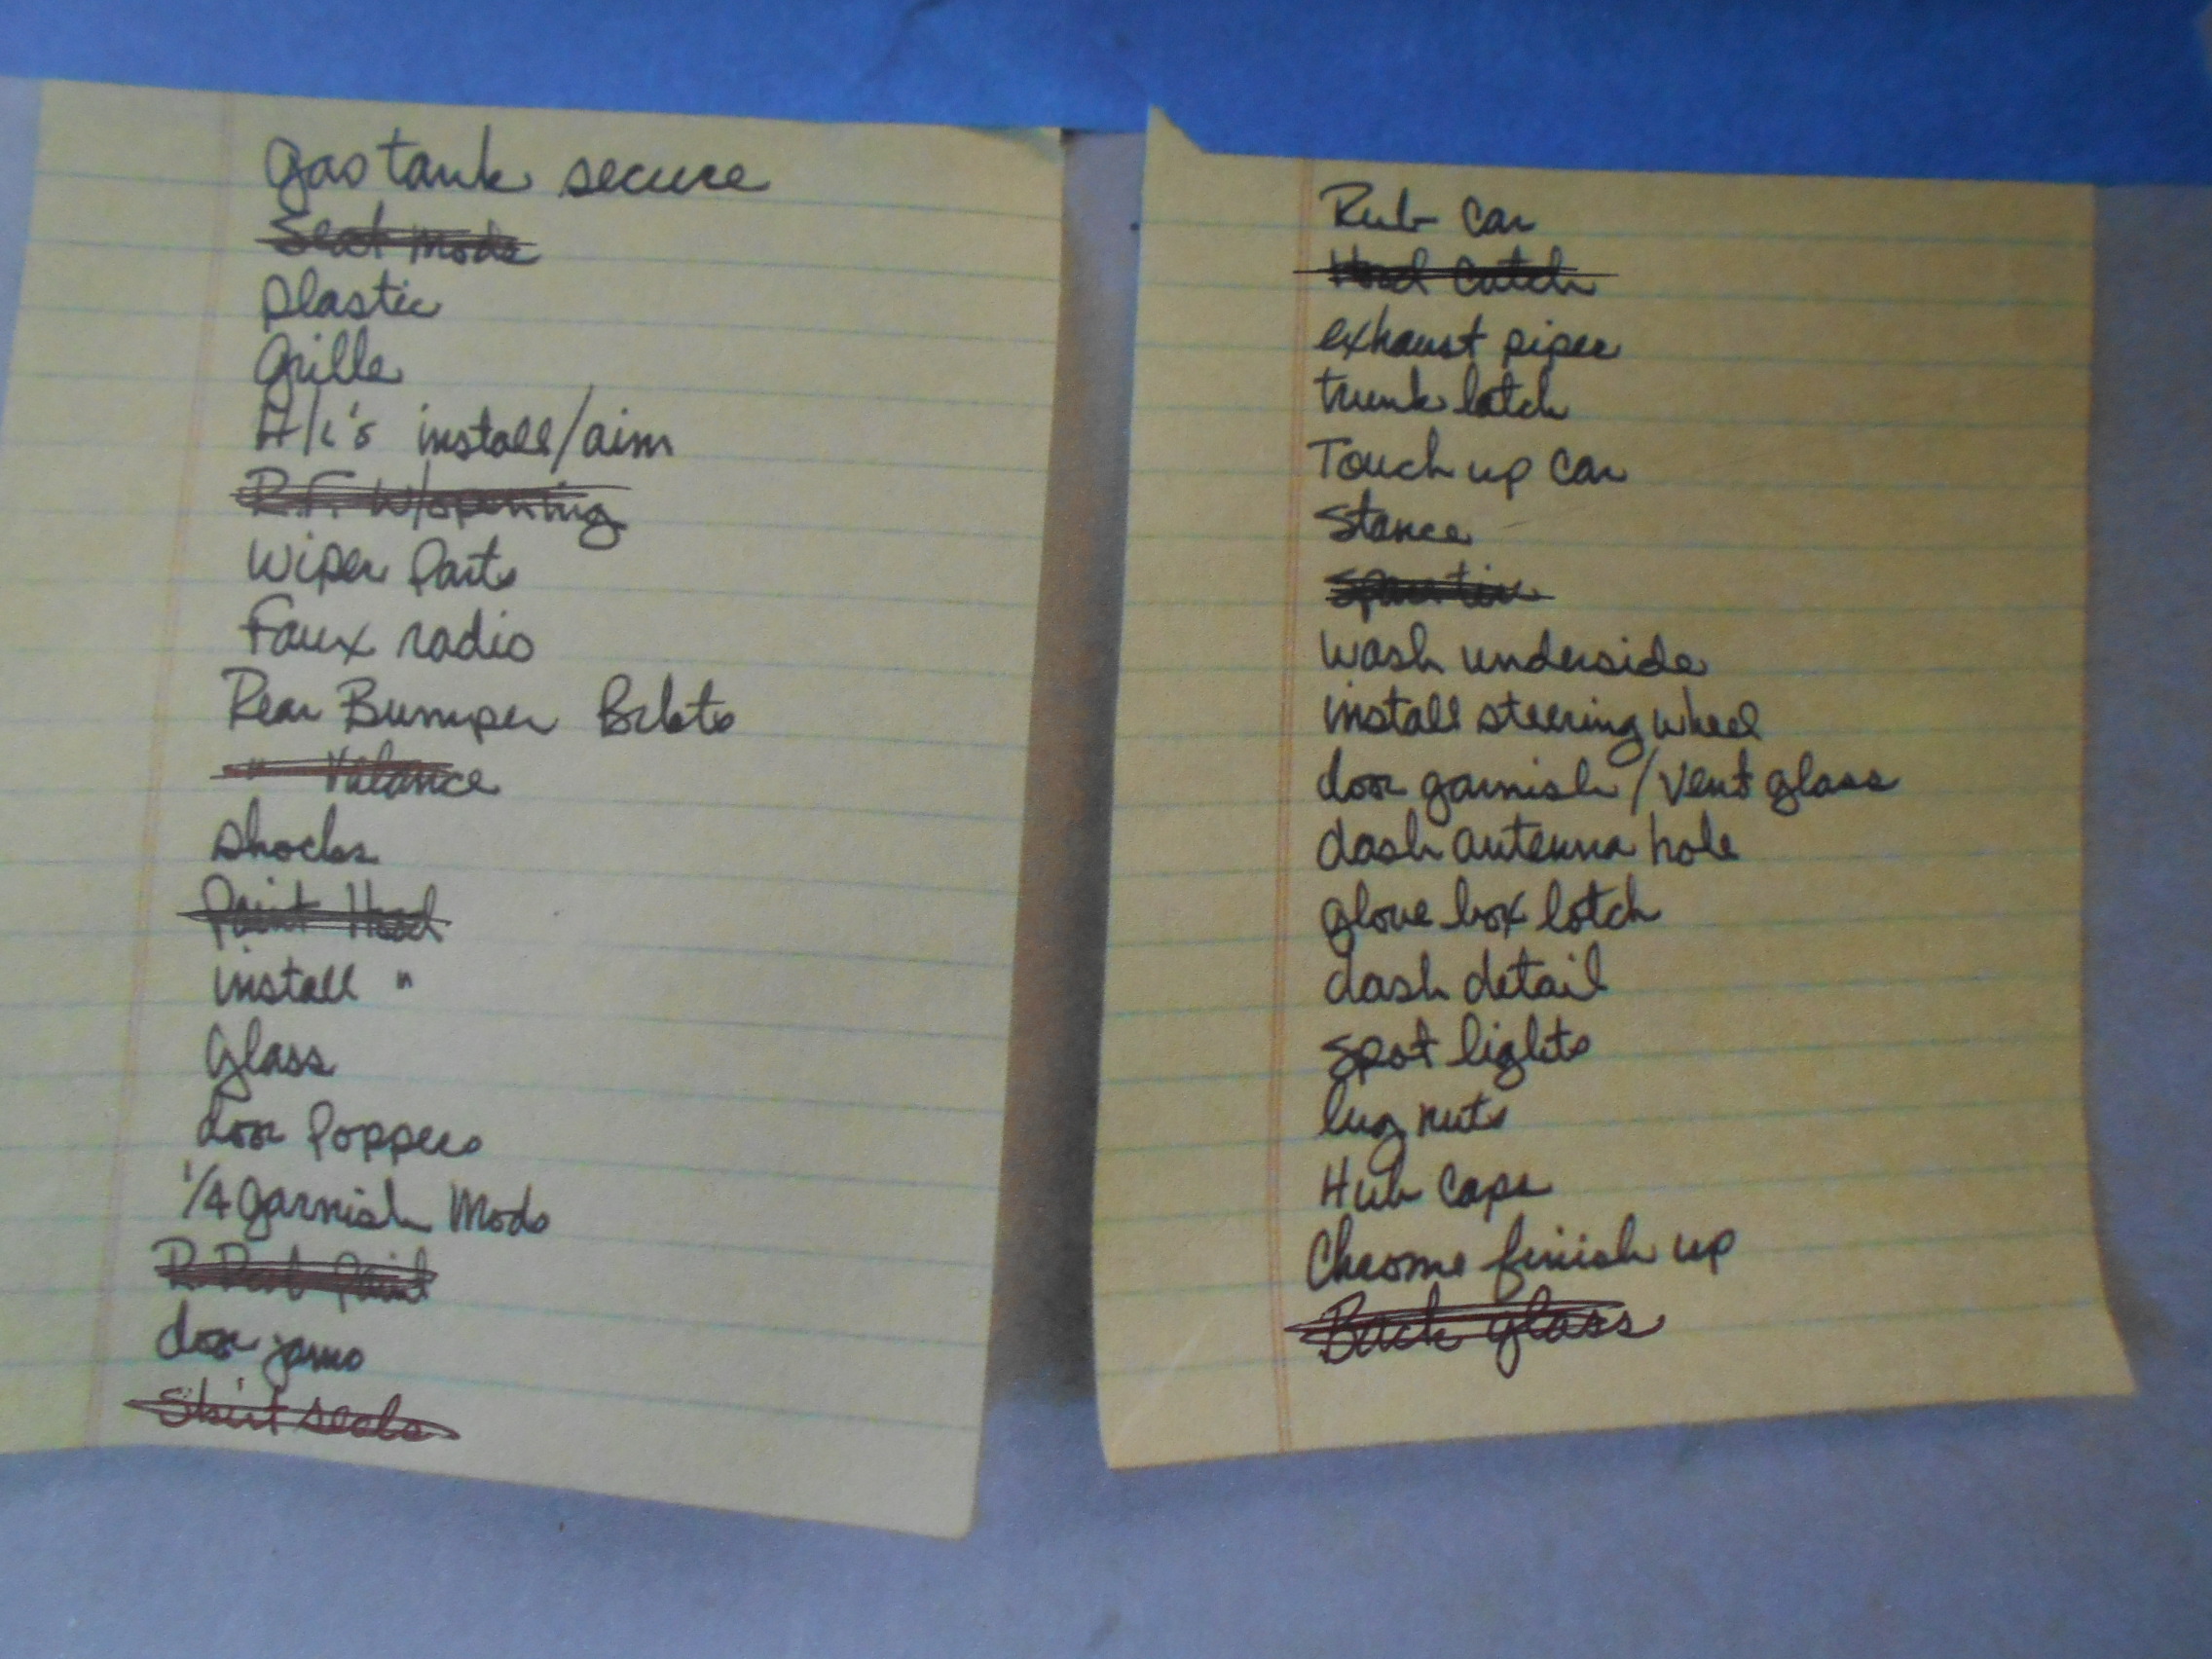 gas tank secure
Seat Mods
plastic
Grille
H/L's install/aim
R.F. W/opening
Wiper Parts
Faux radio
Rear Bumper Brkts
" Valance
shocks
Paint Hood
install "
Glass
door Poppers
1/4 garnish Mods
R. Paint
door jams
Skirt seals
Rub car
Hood Catch
exhaust pipes
trunk latch
Touch up car
Stance
wash underside
install steering wheel
door garnish/vent glass
dash antenna hole
glove box latch
dash detail
spot lights
lug nuts
Hub caps
Chrome finish up
Back glass